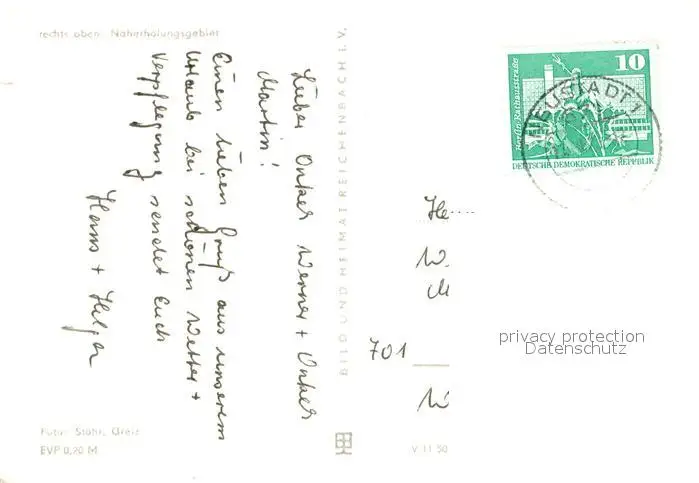 rechts oben: Naherholungsgebiet
Lieber Onkel Werner + Onkel
Martin!
Einen lieben Gruß aus unserem
Urlaub bei schönen Wetter +
Verpflegung sendet Euch
Hans + Helga
Foto: Stöhr, Greiz
EVP 0,20 M
BILD UND HEIMAT REICHENBACH I. V.
V 11 50
10
Berlin Rathausstraße
DEUTSCHE DEMOKRATISCHE REPUBLIK
NEUSTADT
He
W
M
701
W
privacy protection
Datenschutz